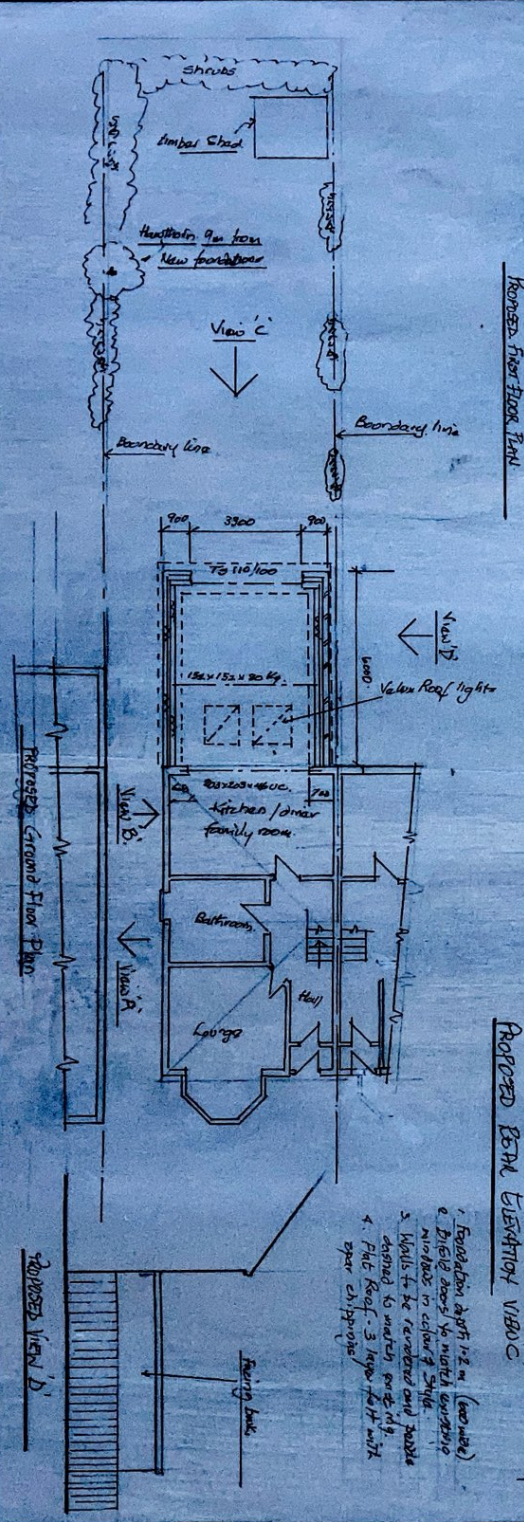 Shrubs
Timber Shed
Hawthorn 9m from
New foundations
View 'C'
Boundary line
Boundary line
PROPOSED FIRST FLOOR PLAN
900
3900
900
6000
View 'D'
Velux Roof lights
152 x 152 x 30 kg
Kitchen / diner
family room.
View 'B'
View 'A'
Bathroom
Hall
Lounge
PROPOSED Ground Floor Plan
PROPOSED REAR ELEVATION VIEW C
1. Foundation depth 1.2 m
2. Bifold doors to match existing
windows in colour & Style.
3. Walls to be rendered and
dashed to match existing.
4. Flat Roof - 3 layer felt with
spar chippings
Facing brick
PROPOSED VIEW 'D'